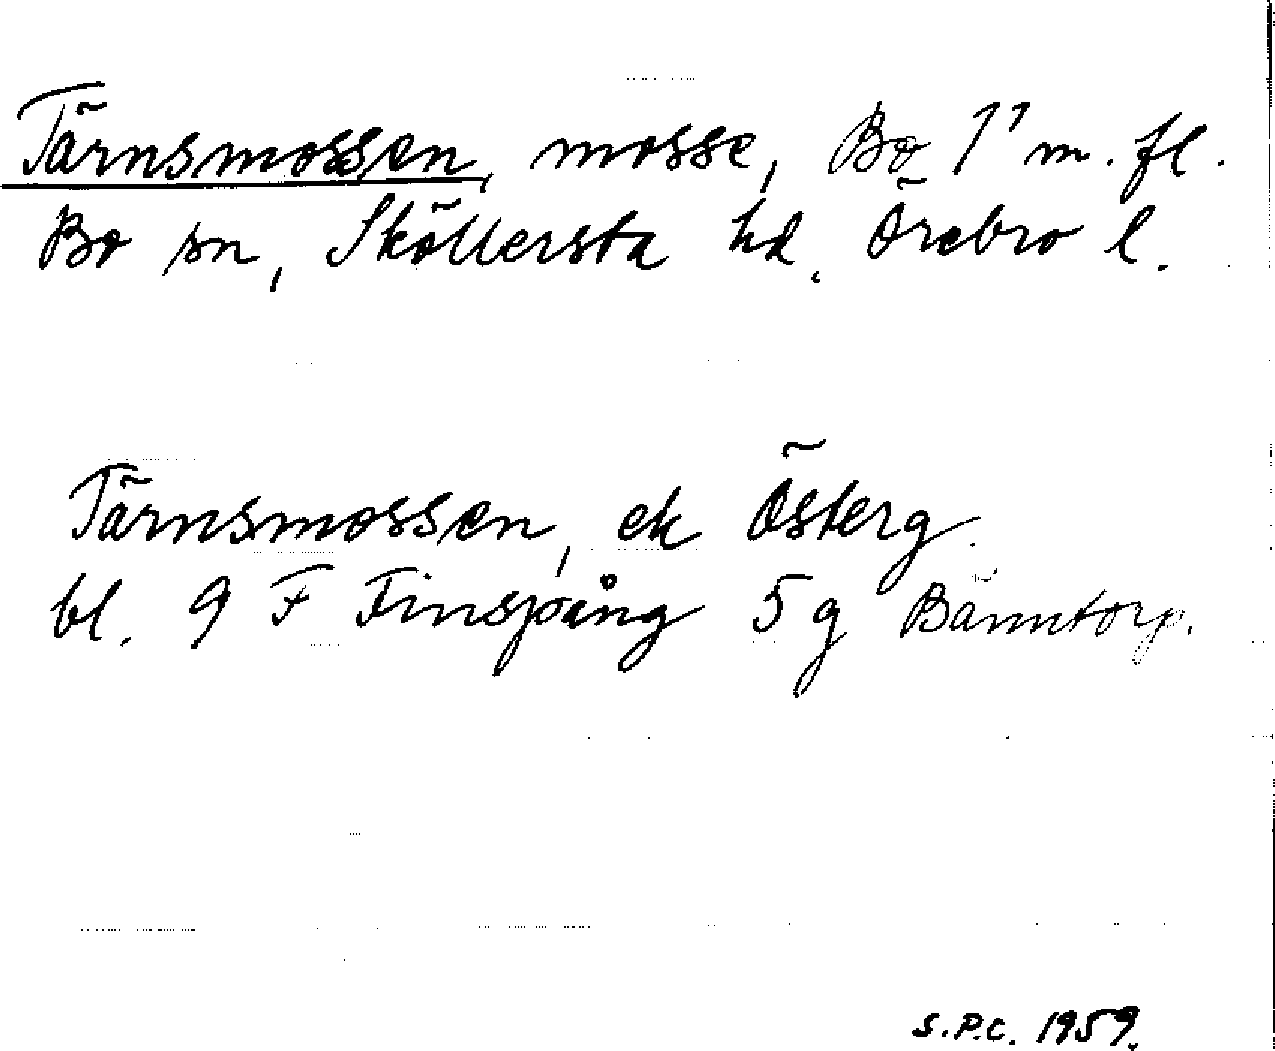 Tärnsmossen, mosse, Bo 1¹ m. fl.
Bo sn, Sköllersta hd. Örebro l.
Tärnsmossen, ek Österg.
bl. 9 F Finspång 5 g Bänntorp.
S.P.C. 1959.